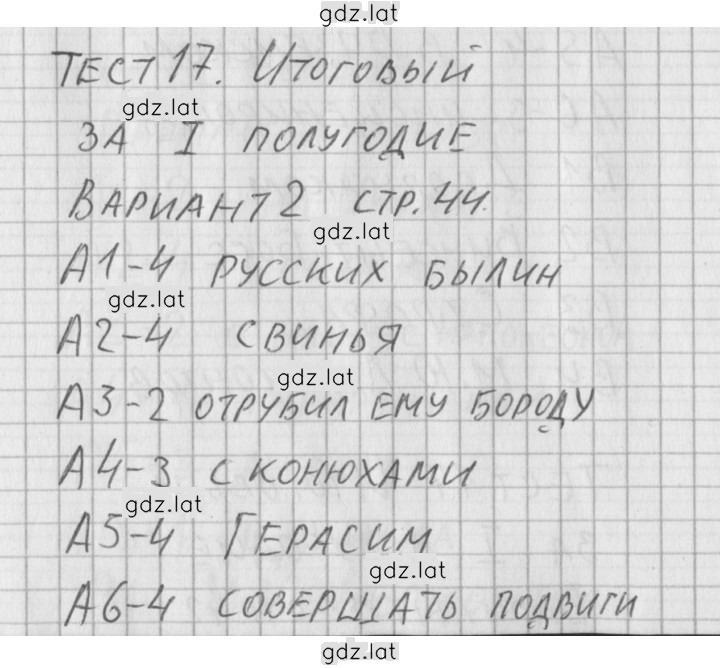 gdz.lat
ТЕСТ 17. ИТОГОВЫЙ
gdz.lat
ЗА I ПОЛУГОДИЕ
ВАРИАНТ 2 СТР. 44.
gdz.lat
А1-4 РУССКИХ БЫЛИН
gdz.lat
А2-4 СВИНЬЯ
gdz.lat
А3-2 ОТРУБИЛ ЕМУ БОРОДУ
А4-3 С КОНЮХАМИ
gdz.lat
А5-4 ГЕРАСИМ
gdz.lat
А6-4 СОВЕРШАТЬ ПОДВИГИ
gdz.lat